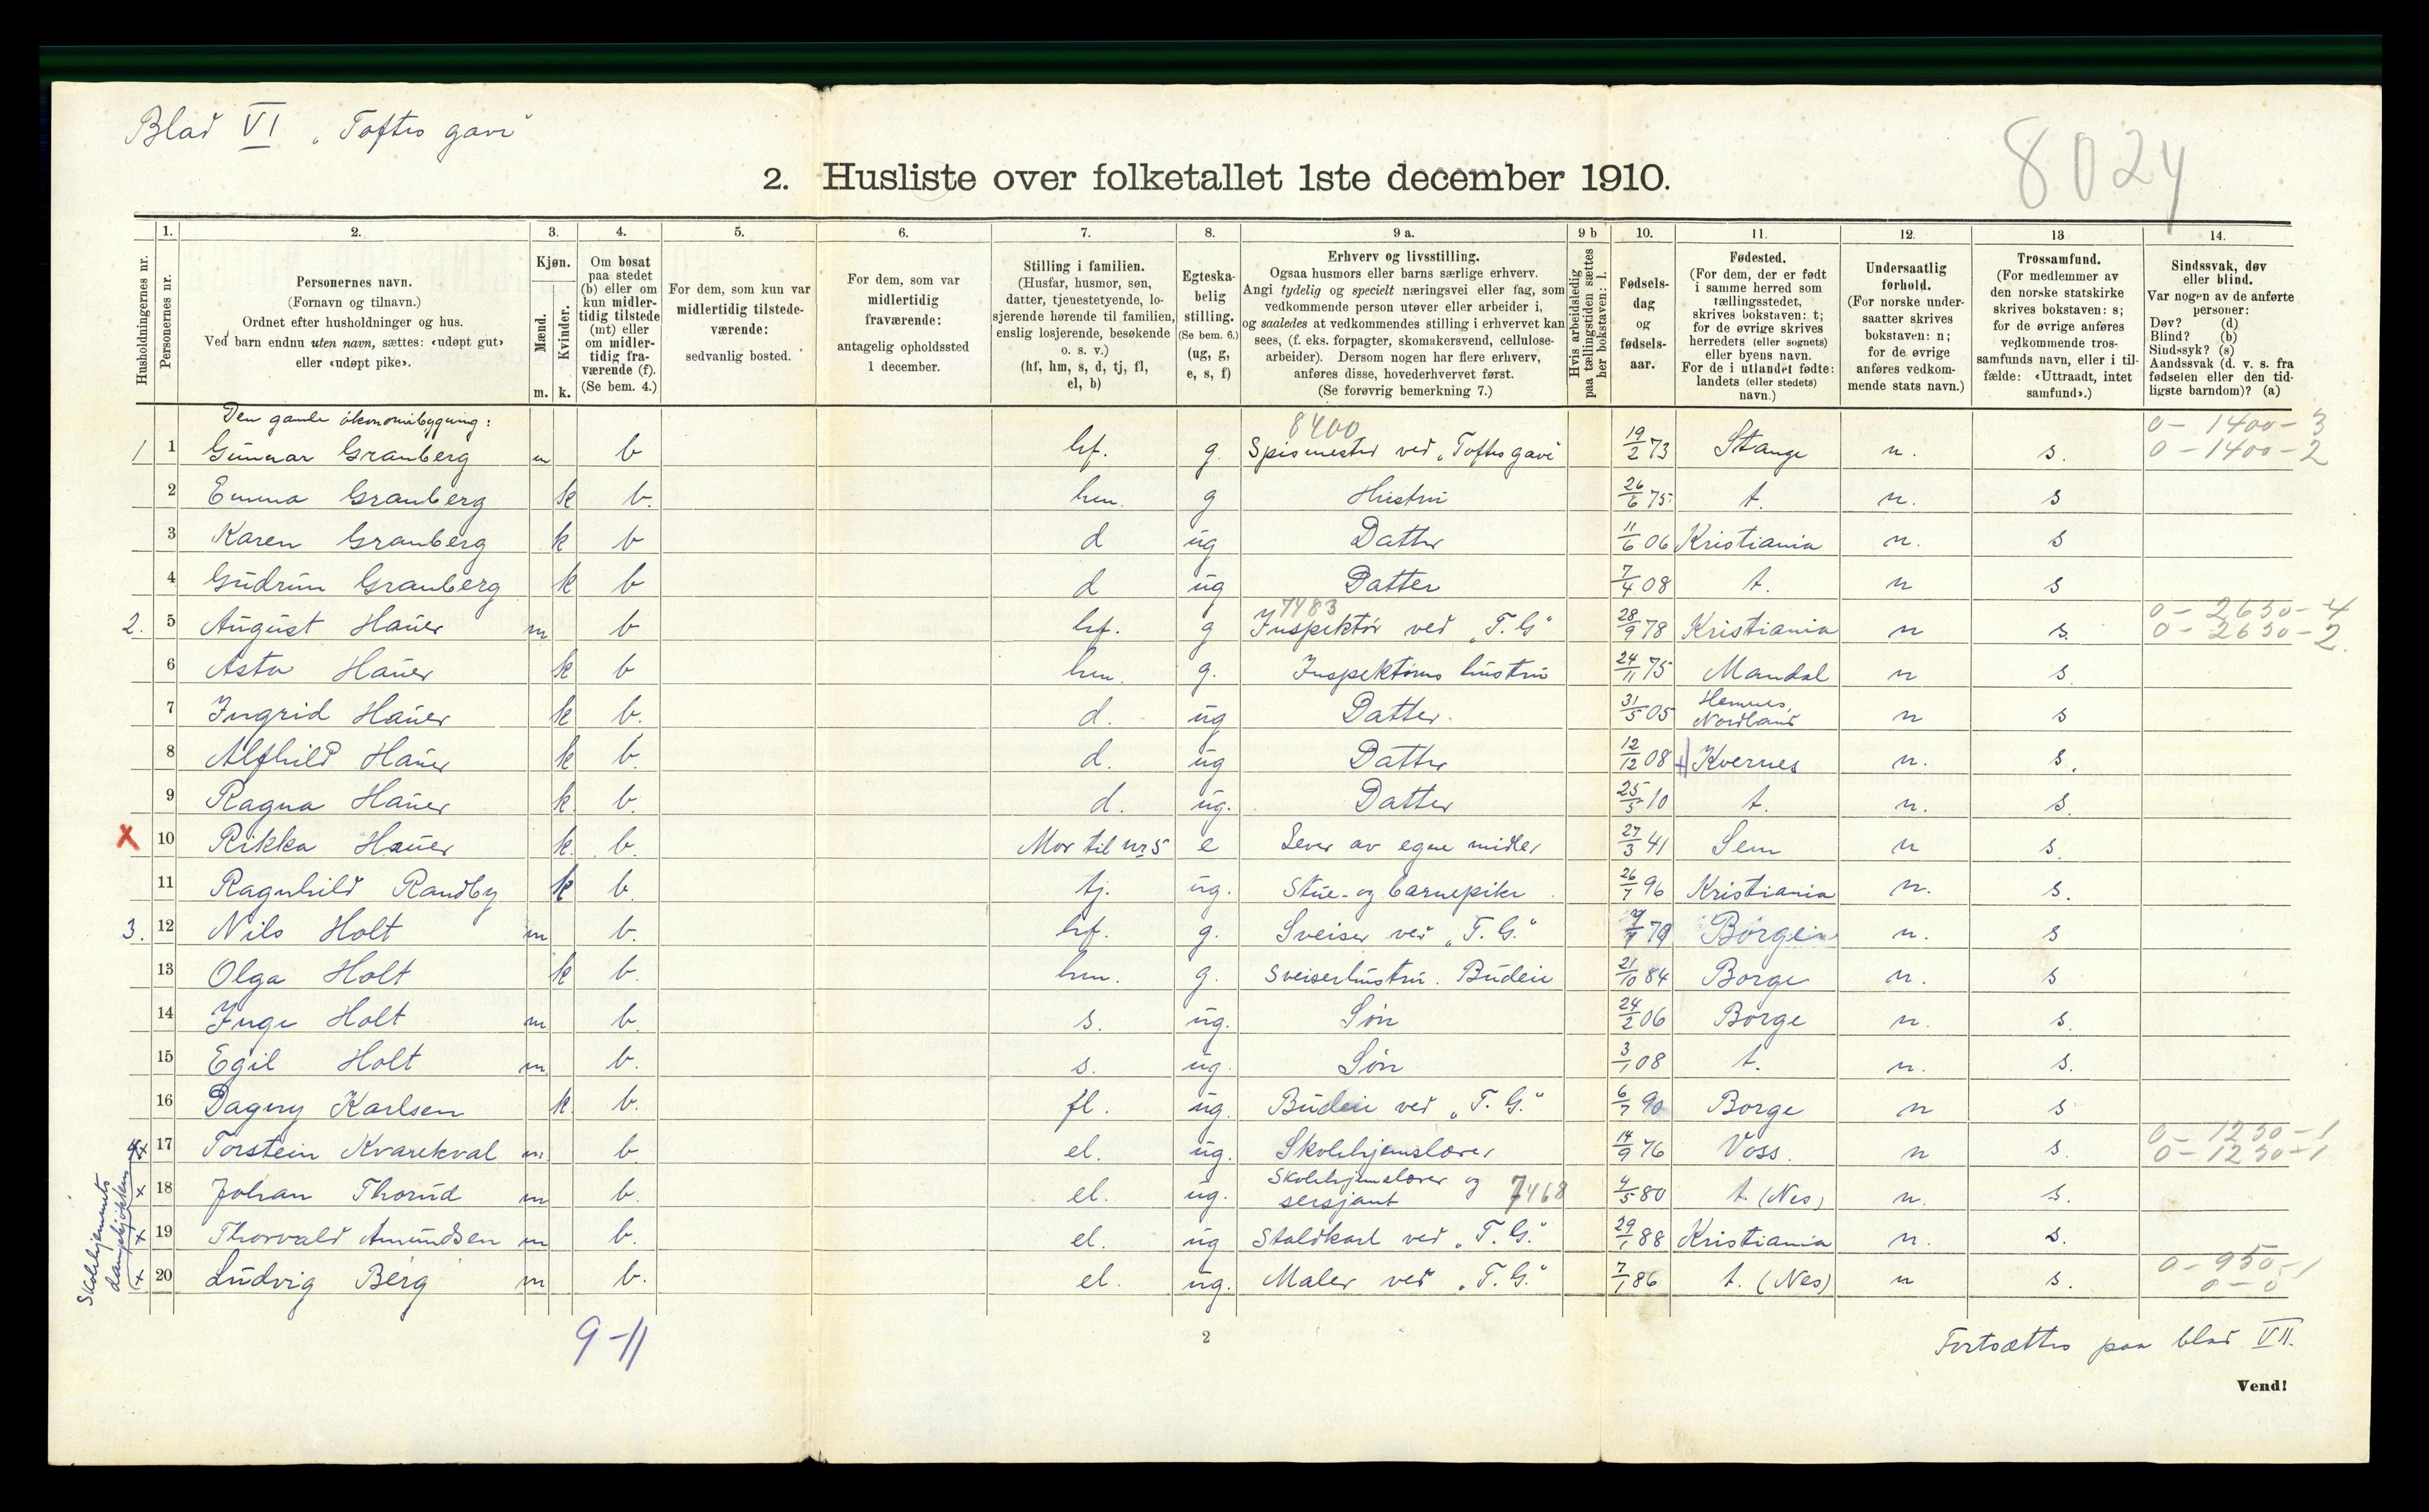 Blad VI „Toftes gave"
8024
2. Husliste over folketallet 1ste december 1910.
Husholdningernes nr.
1. Personernes nr.
2. Personernes navn.
(Fornavn og tilnavn.)
Ordnet efter husholdninger og hus.
Ved barn endnu uten navn, sættes: «udøpt gut»
eller «udøpt pike».
3. Kjøn.
Mænd. m.
Kvinder. k.
4. Om bosat
paa stedet
(b) eller om
kun midler-
tidig tilstede
(mt) eller
om midler-
tidig fra-
værende (f).
(Se bem. 4.)
5. For dem, som kun var
midlertidig tilstede-
værende:
sedvanlig bosted.
6. For dem, som var
midlertidig
fraværende:
antagelig opholdssted
1 december.
7. Stilling i familien.
(Husfar, husmor, søn,
datter, tjenestetyende, lo-
sjerende hørende til familien,
enslig losjerende, besøkende
o. s. v.)
(hf, hm, s, d, tj, fl,
el, b)
8. Egteska-
belig
stilling.
(Se bem. 6.)
(ug, g,
e, s, f)
9 a. Erhverv og livsstilling.
Ogsaa husmors eller barns særlige erhverv.
Angi tydelig og specielt næringsvei eller fag, som
vedkommende person utøver eller arbeider i,
og saaledes at vedkommendes stilling i erhvervet kan
sees, (f. eks. forpagter, skomakersvend, cellulose-
arbeider). Dersom nogen har flere erhverv,
anføres disse, hovederhvervet først.
(Se forøvrig bemerkning 7.)
9 b Hvis arbeidsledig
paa tællingstiden sættes
her bokstaven: l.
10. Fødsels-
dag
og
fødsels-
aar.
11. Fødested.
(For dem, der er født
i samme herred som
tællingsstedet,
skrives bokstaven: t;
for de øvrige skrives
herredets (eller sognets)
eller byens navn.
For de i utlandet fødte:
landets (eller stedets)
navn.)
12. Undersaatlig
forhold.
(For norske under-
saatter skrives
bokstaven: n;
for de øvrige
anføres vedkom-
mende stats navn.)
13 Trossamfund.
(For medlemmer av
den norske statskirke
skrives bokstaven: s;
for de øvrige anføres
vedkommende tros-
samfunds navn, eller i til-
fælde: «Uttraadt, intet
samfund».)
14. Sindssvak, døv
eller blind.
Var nogen av de anførte
personer:
Døv? (d)
Blind? (b)
Sindssyk? (s)
Aandssvak (d. v. s. fra
fødselen eller den tid-
ligste barndom)? (a)
Den gamle økonomibygning:
8400 0 - 1400 - 3
1 1 Gunnar Granberg m b hf. g. Spismester ved „Toftes gave" 19/2 73 Stange n. s. 0 - 1400 - 2
2 Emma Granberg k b. hm. g Hustru 26/6 75 t. n. s
3 Karen Granberg k b d ug Datter 11/6 06 Kristiania n. s
4 Gudrun Granberg k b d ug Datter 7/4 08 t. n s
7483 0 - 2650 - 4
2. 5 August Hauer m b hf. g Inspektør ved „T. G" 28/9 78 Kristiania n s. 0 - 2650 - 2.
6 Asta Hauer k b hm. g. Inspektørens hustru 24/11 75 Mandal n s.
7 Ingrid Hauer k b. d. ug Datter. 31/5 05 Hemnes, Nordland n s
8 Alfhild Hauer k b. d. ug Datter 12/12 08 Kvernes n. s.
9 Ragna Hauer k. b. d. ug. Datter 25/5 10 t. n. s.
X 10 Rikka Hauer k. b. Mor til nr 5 e Lever av egne midler 27/3 41 Sem n s.
11 Ragnhild Randby k b. tj. ug. Stue- og barnepike 26/7 96 Kristiania n. s.
3. 12 Nils Holt m b. hf. g. Sveiser ved „T. G." 79 Borge n. s
13 Olga Holt k b. hm. g. Sveiserhustru. Budeie 21/10 84 Borge n. s
14 Inge Holt m b. s. ug. Søn 24/2 06 Borge n. s.
15 Egil Holt m. b. s. ug. Søn 3/1 08 t. n. s.
16 Dagny Karlsen k. b. fl. ug. Budeie ved „T. G." 6/7 90 Borge n s
0 - 1250 - 1
4 x 17 Torstein Kvarekval m. b. el. ug. Skolehjemslærer 14/9 76 Voss. n s. 0 - 1250 - 1
x 18 Johan Thorud m b. el. ug. Skolehjemslærer og sersjant 7468 4/5 80 t. (Nes) n. s.
x 19 Thorvald Amundsen m b. el. ug Staldkarl ved „T. G." 29/1 88 Kristiania n. s.
0 - 950 - 1
x 20 Ludvig Berg m b. el. ug. Maler ved „T. G." 7/1 86 t. (Nes) n s. 0 - 0
Skolehjemmets
dampkjøkken
9-11
2
Fortsættes paa blad VII.
Vend!